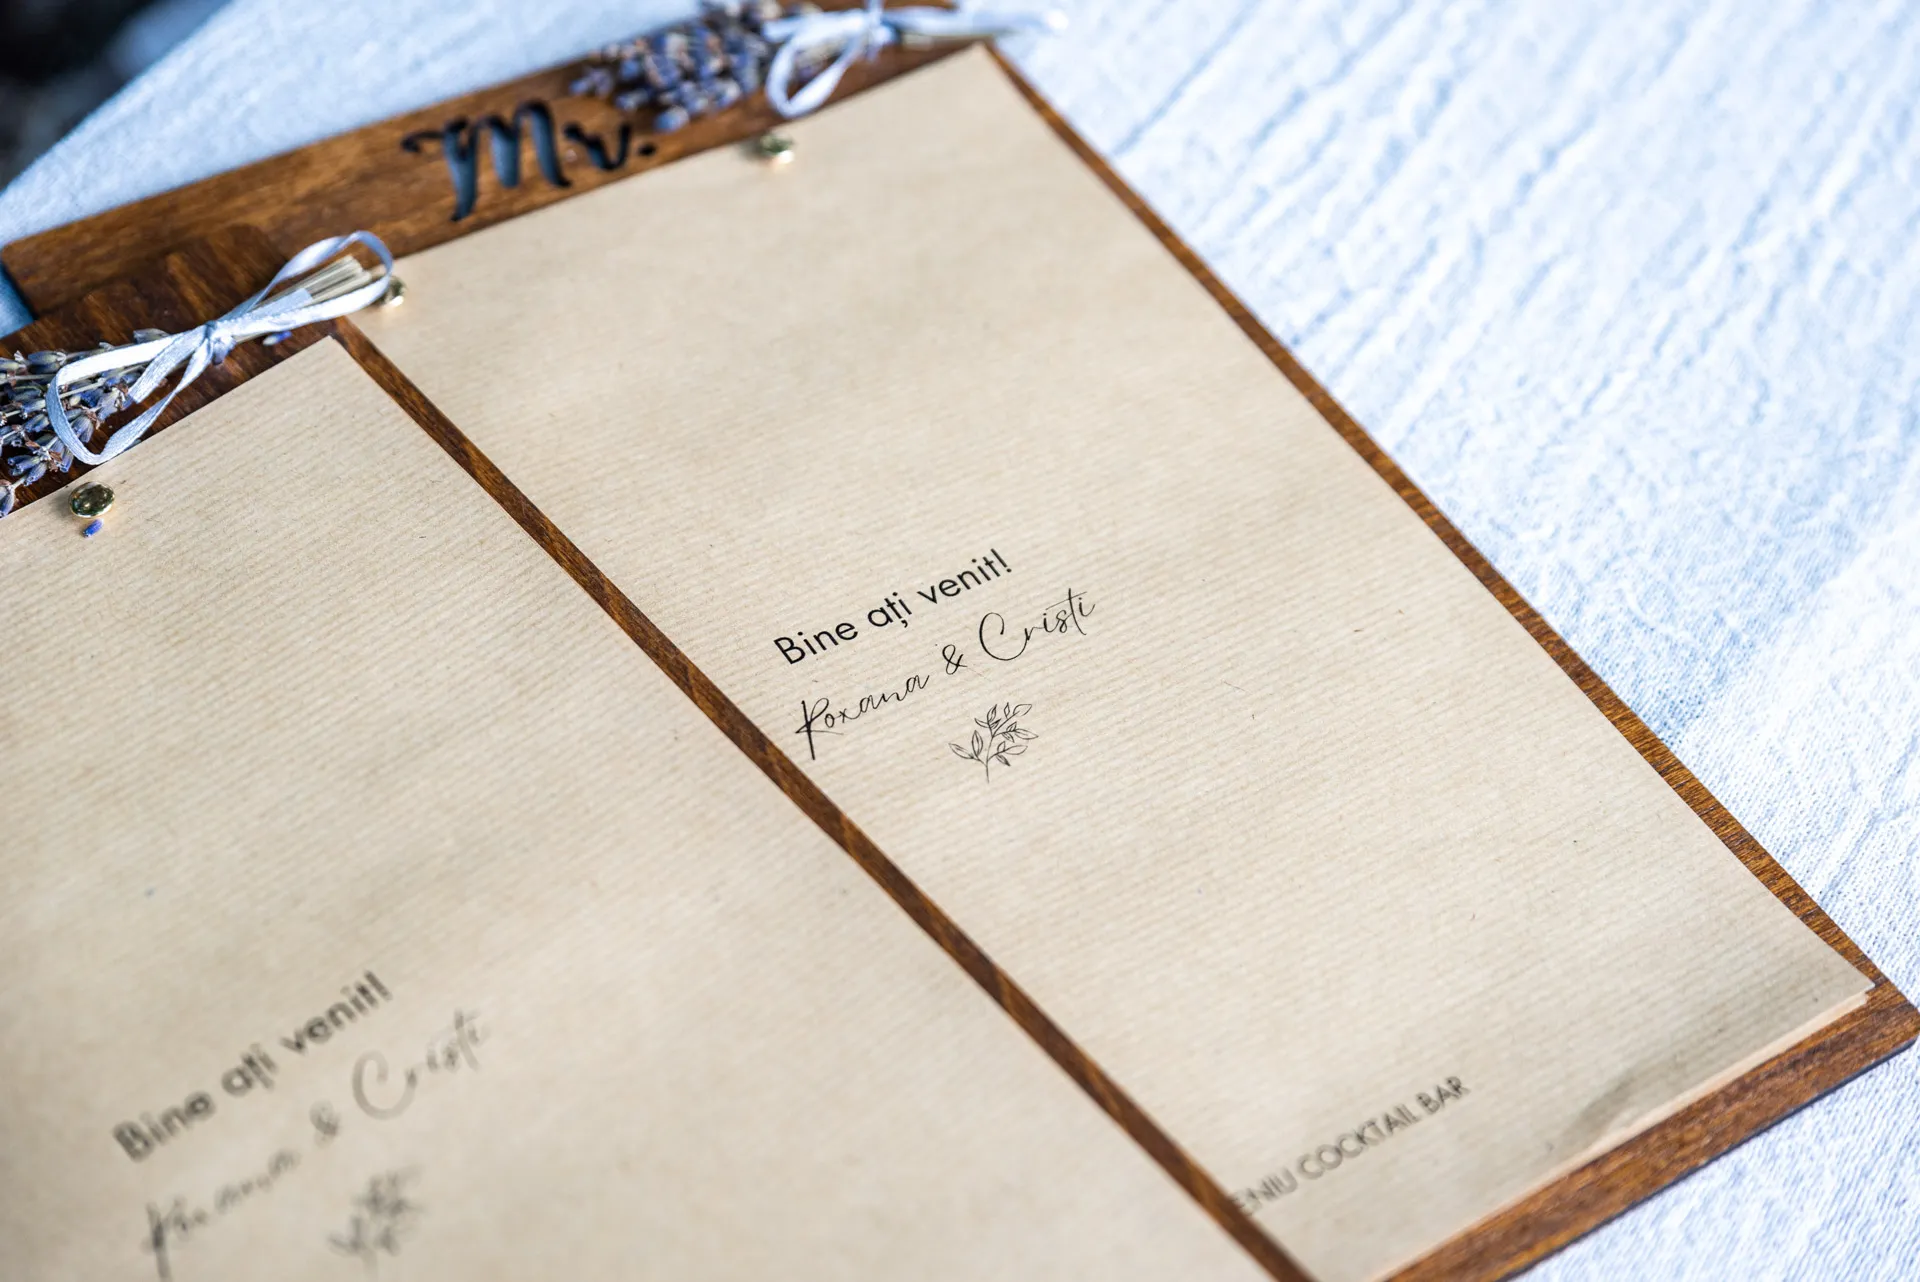 Mr.
Bine ați venit!
Roxana & Cristi
COCKTAIL BAR
Bine ați venit!
Roxana & Cristi